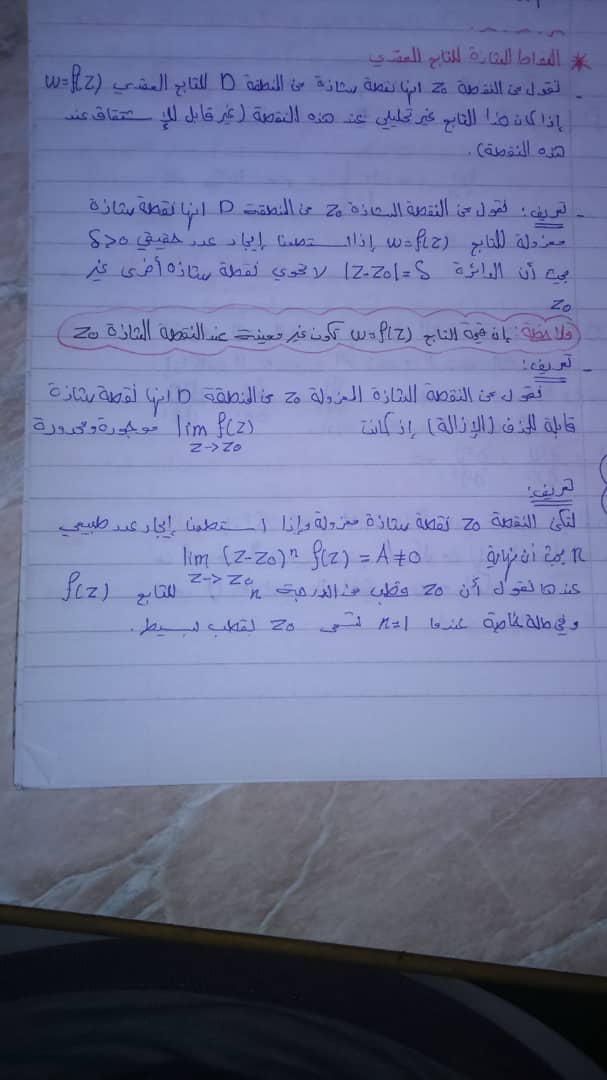 * النقاط الشاذة للتابع العقدي
- نقول عن النقطة z₀ انها نقطة شاذة من المنطقة D للتابع العقدي w=f(z)
إذا كان هذا التابع غير تحليلي عند هذه النقطة (غير قابل للإشتقاق عند
هذه النقطة).
- تعريف: نقول عن النقطة الشاذة z₀ من المنطقة D انها نقطة شاذة
معزولة للتابع w=f(z) إذا استطعنا إيجاد عدد حقيقي δ>0
بحيث أن الدائرة |z-z₀|=δ لا تحوي نقطة شاذة أخرى غير
z₀
ملاحظة: إن قيمة التابع w=f(z) تكون غير معينة عند النقطة الشاذة z₀
- تعريف:
نقول عن النقطة الشاذة المعزولة z₀ من المنطقة D انها نقطة شاذة
قابلة للحذف (الإزالة) إذ كانت lim f(z) موجودة ومحدودة
z→z₀
تعريف:
لتكن النقطة z₀ نقطة شاذة معزولة وإذا استطعنا إيجاد عدد طبيعي
n بحيث أن نهاية lim (z-z₀)ⁿ f(z) = A≠0
z→z₀
عندها نقول أن z₀ قطب من الدرجة n للتابع f(z)
وفي حالة خاصة عندما n=1 تسمى z₀ لقطب بسيط.